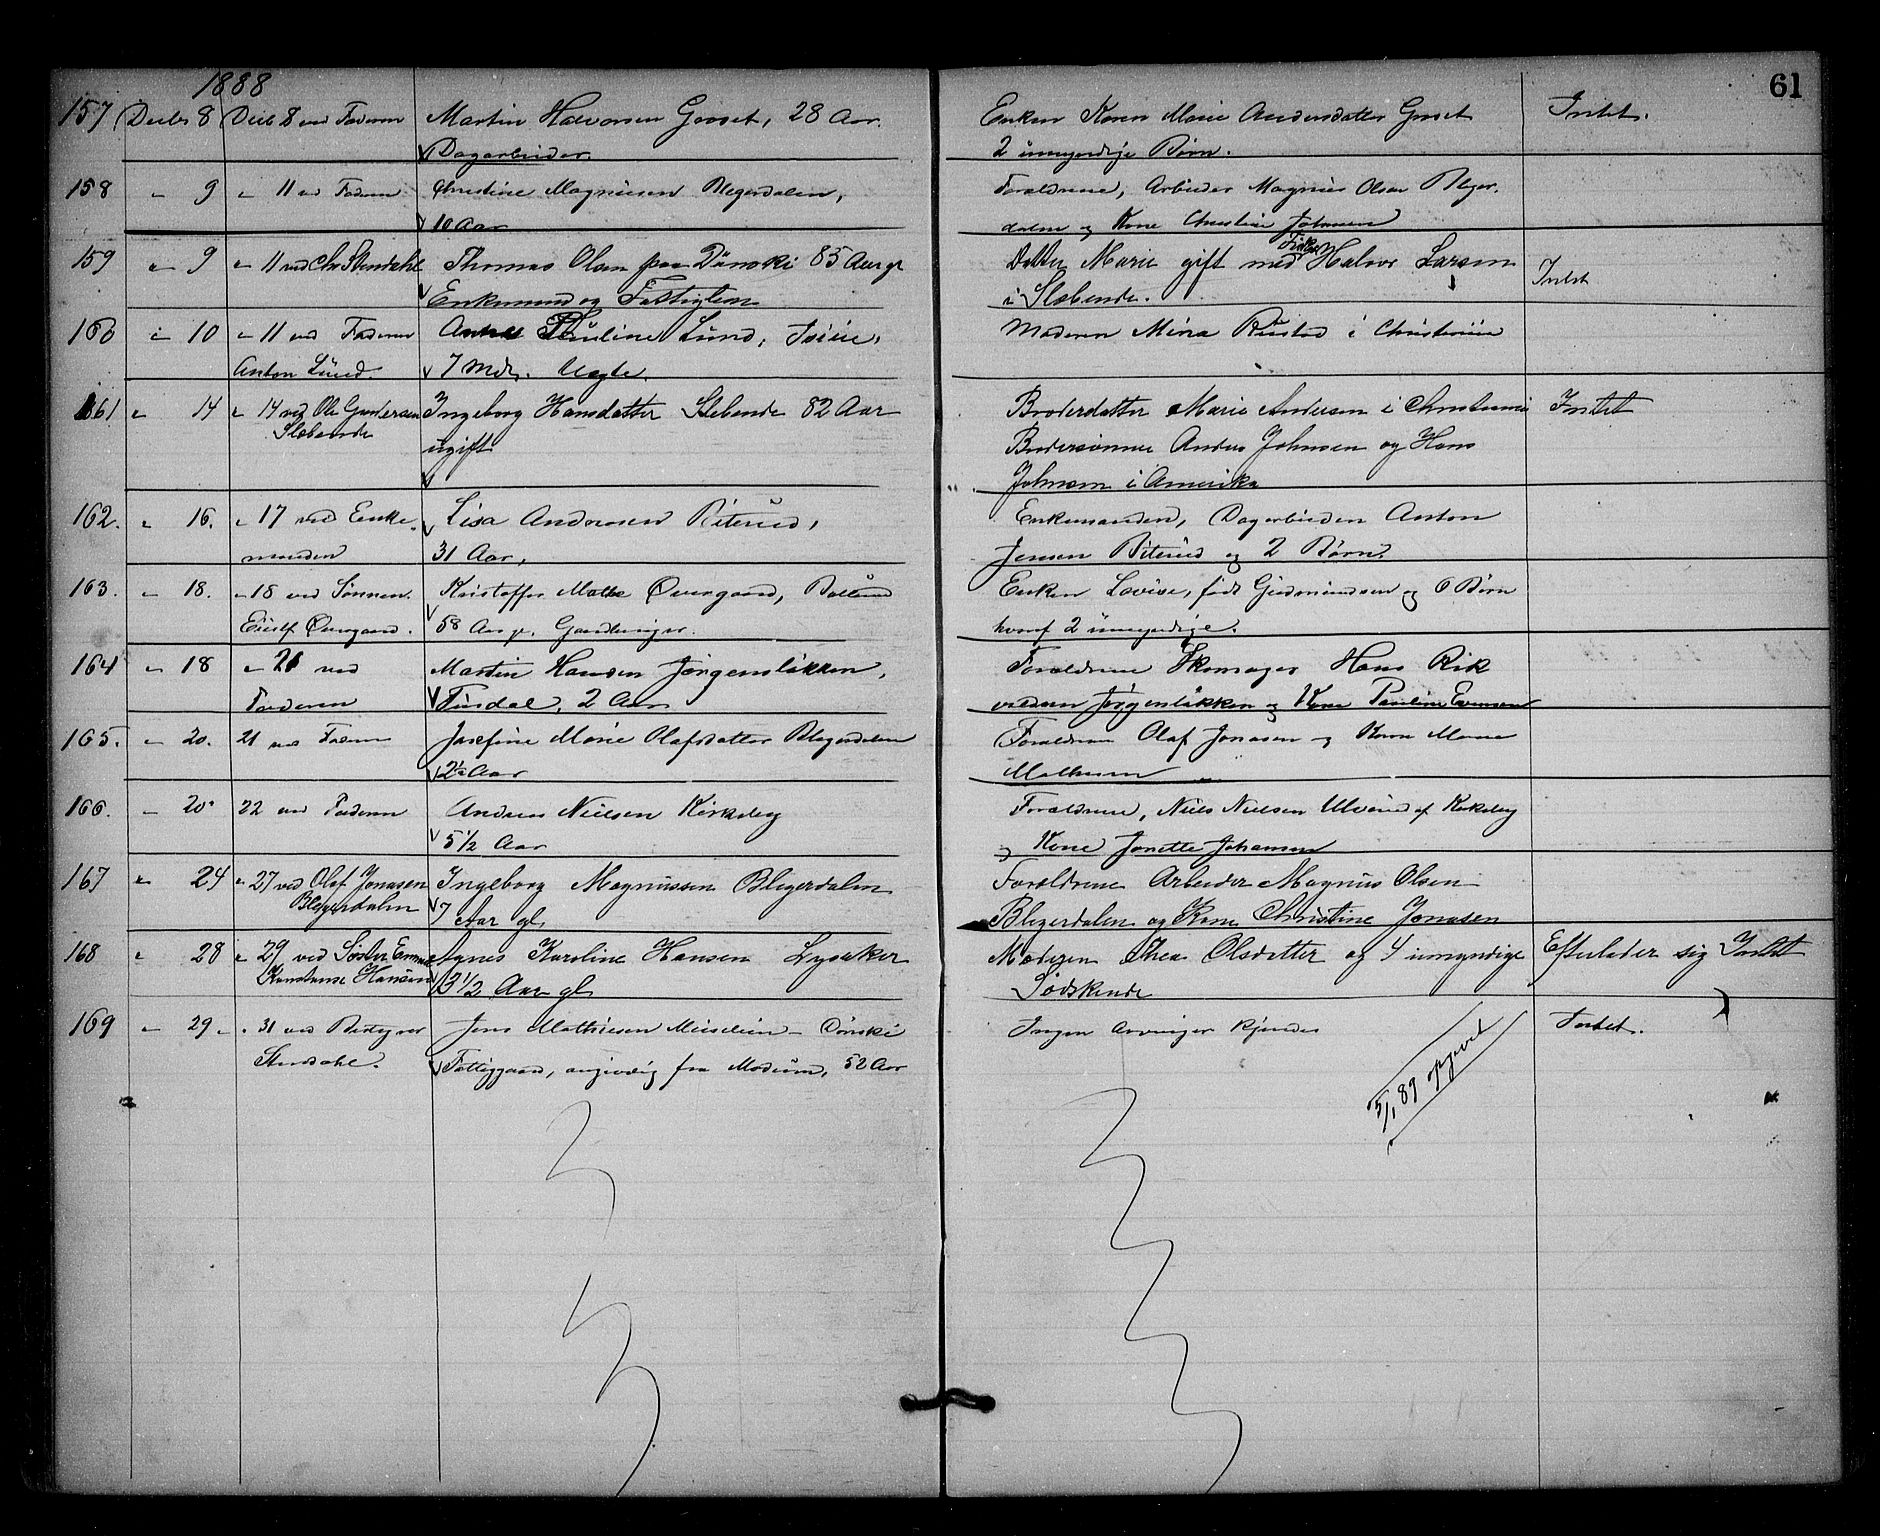 61
1888
157 Decbr 8 Decb 8 ved Faderen Martin Halvorsen Groset, 28 Aar. Enken Karen Marie Andersdatter Groset Intet.
Dagarbeider. 2 umyndige Børn.
158 " 9 " 11 ved Faderen Christine Magnusen Blegerdalen, Forældrene, Arbeider Magnus Olsen Bleger-
10 Aar dalen og Kone Christine Johnsen
159 " 9 " 11 ved Chr Stendahl Thomas Olsen paa Dønski 85 Aar gl Datter Marie gift med Halvor Larsen Intet
Enkemand og Fattiglem i Slæbende.
160 " 10 " 11 ved Faderen Pauline Lund, Moderen Mina Rustad i Christiania
Anton Lund. 7 Mdr. Uægte.
161 " 14 " 14 ved Ole Gundersen Ingeborg Hansdatter Slebende 82 Aar Broderdatter Marie Andersen i Christiania Intet
Slæbende ugift Brodersønner Anders Johnsen og Hans
Johnsen i Amerika
162. " 16. " 17 ved Enke- Lisa Andersen Biterud, Enkemanden, Dagarbeider Anton
manden 31 Aar, Jensen Biterud og 2 Børn.
163. " 18. " 18 ved Sønnen Kristoffer Overgaard, Enken Lovise, født Gudmundsen og 6 Børn
Overgaard. 58 Aar gl. hvoraf 2 umyndige.
164 " 18 " 21 ved Martin Hansen Jørgensløkken, Forældrene Skomager Hans Rik
Faderen 2 Aar Jørgensløkken og Kone Pauline Evensen
165. " 20. 21 ved Faderen Josefine Marie Olafsdatter Blegerdalen Forældrene Olaf Jonasen og Kone Maren
2½ Aar
166. " 20 22 ved Faderen Andreas Nielsen Kirkeby Forældrene, Niels Nielsen af Kirkeby
5 1/2 Aar og Kone Jonette Johansen
167 " 24 " 27 ved Olaf Jonasen Ingeborg Magnussen Blegerdalen Forældrene Arbeider Magnus Olsen
Blegerdalen 7 Aar gl. Blegerdalen og Kone Christine Jonasen
168 " 28 " 29 ved Søster Emma Agnes Karoline Hansen Lysaker Moderen Thea Olsdatter og 4 umyndige Efterlader sig Intet
Konstanse Hansen 3 1/2 Aar gl Sødskende
169 " 29 " " 31 ved Bestyrer Jens Mathiesen Dønski Ingen Arvinger kjendes Intet.
Stendahl. Fattiggaard, angivelig fra Modum, 52 Aar
5/1 89 opgivet